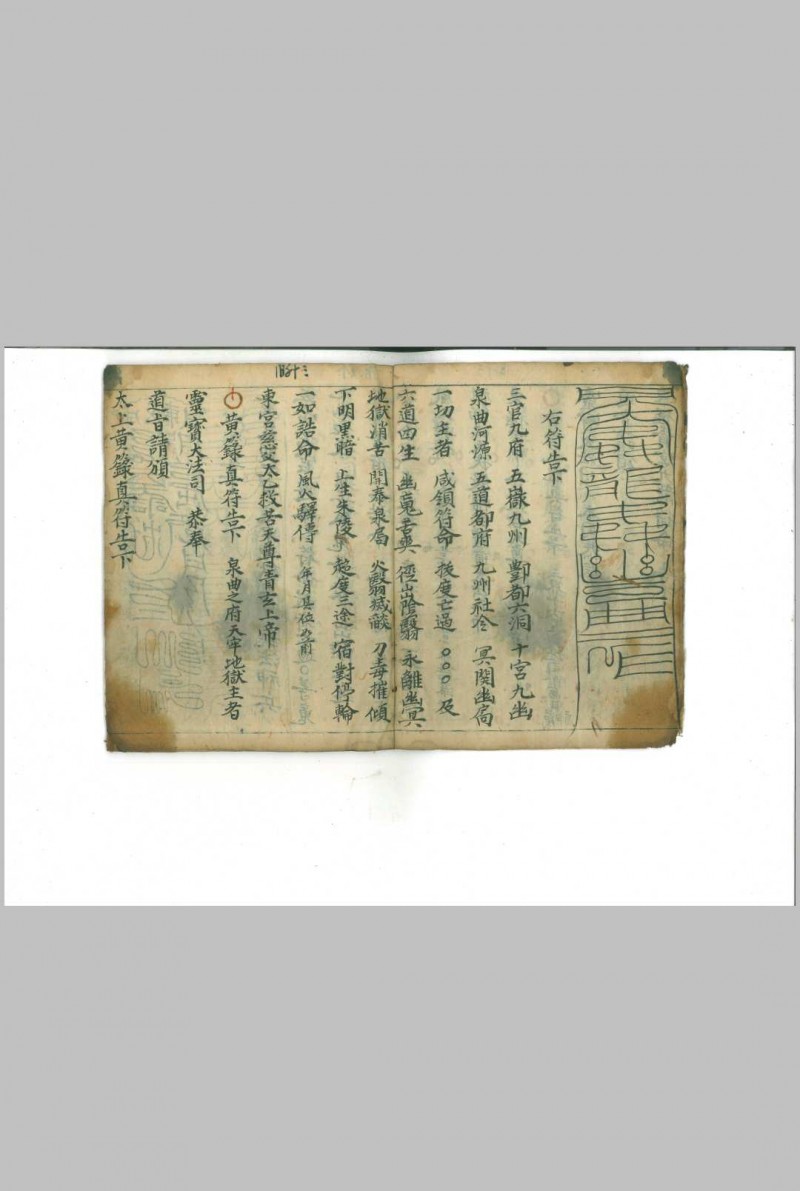 右符告下
三官九府 五嶽九州 酆都六洞 十宮九幽
泉曲河源 五道都府 九州社令 冥関幽局
一切主者 咸領符命 拔度亡過 〇〇〇 及
六道四生 幽䰟苦爽 徑出陰翳 永離幽冥
地獄消苦 開泰泉扃 火翳滅 刀毒摧傾
下明黑暗 上生朱陵 超度三途 宿對停輪
一如誥命 風火驛傳 年月具位如前
東宮慈父太乙救苦天尊青玄上帝
黃籙真符告下 泉曲之府天牢地獄主者
靈寶大法司 恭奉
道旨請頒
太上黃籙真符告下